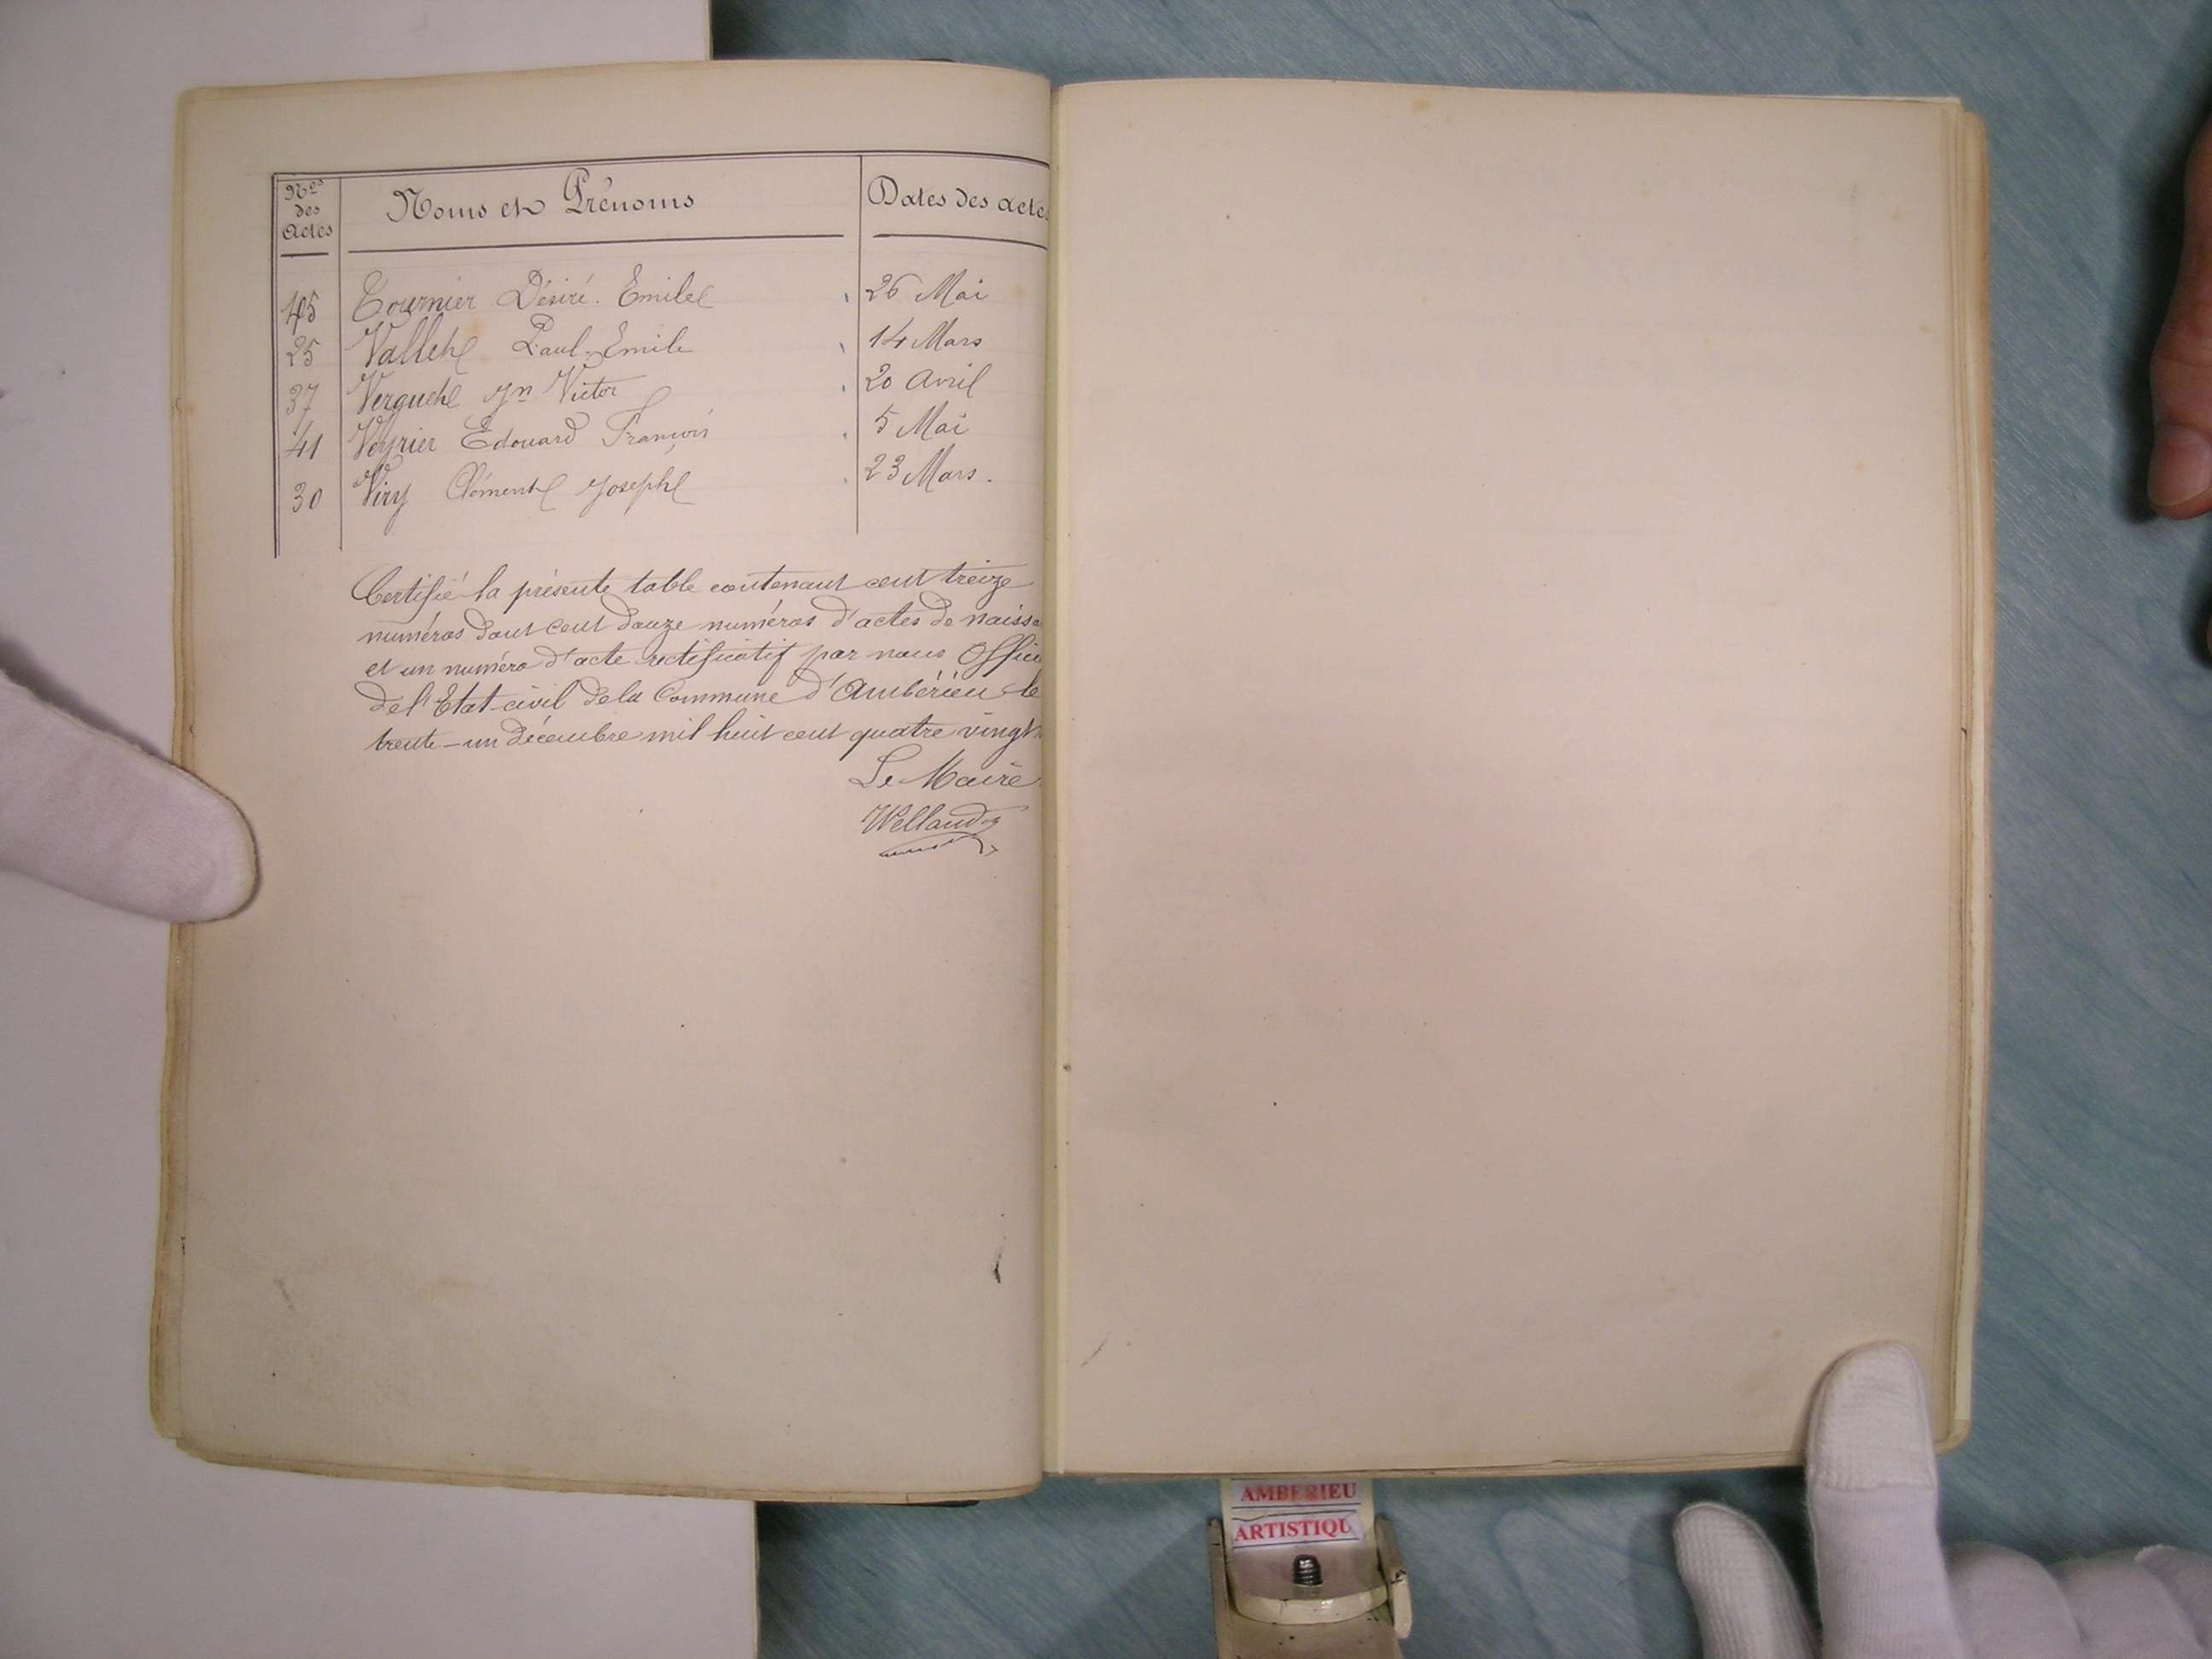 Nos des Actes Noms et Prénoms Dates des acte
45 Tournier Désiré. Emile 26 Mai
25 Vallet Paul-Emile 14 Mars
37 Verguet Jn Victor 20 Avril
41 Veyrier Edouard François 5 Mai
30 Viry Clément Joseph 23 Mars.
Certifié la présente table contenant cent treize
numéros dont cent douze numéros d'actes de naissa
et un numéro d'acte rectificatif par nous Offici
de l'Etat-civil de la Commune d'Ambérieu le
trente-un décembre mil huit cent quatre vingt
Le Maire
AMBERIEU
ARTISTIQU